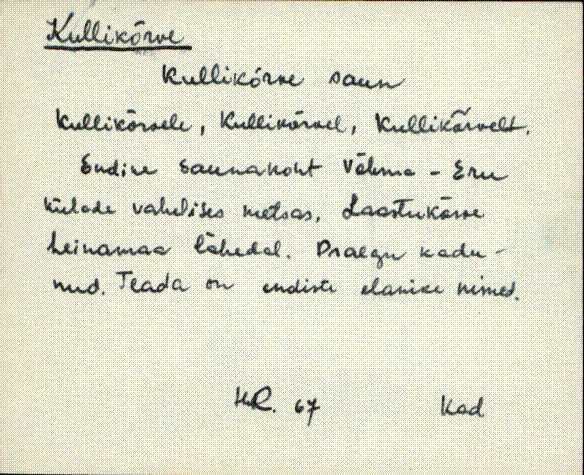 Kullikõrve
Kullikõrve saun
Kullikõrvele, Kullikõrvel, Kullikõrvelt.
Endine saunakoht Võhma - Eru
külade vahelises metsas, Laastukõrve
heinamaa lähedal. Praegu kadu-
nud. Teada on endiste elanike nimed.
H.R. 67 Kad